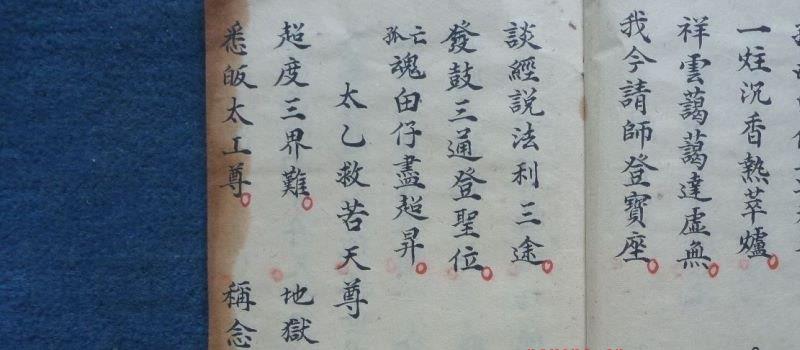 一炷沉香熱萃爐
祥雲藹藹達虛無
我今請師登寶座
談經說法利三途
發鼓三通登聖位
孤亡魂由仔盡超昇
太乙救苦天尊
超度三界難 地獄
悉皈太上尊 稱念